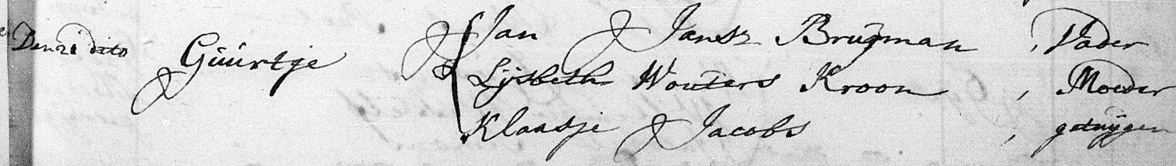 Den 21 dito Guurtje Jan Jansz Brugman, Vader
Lijsbeth Wouters Kroon, Moeder
Klaasje Jacobs, getuijgen